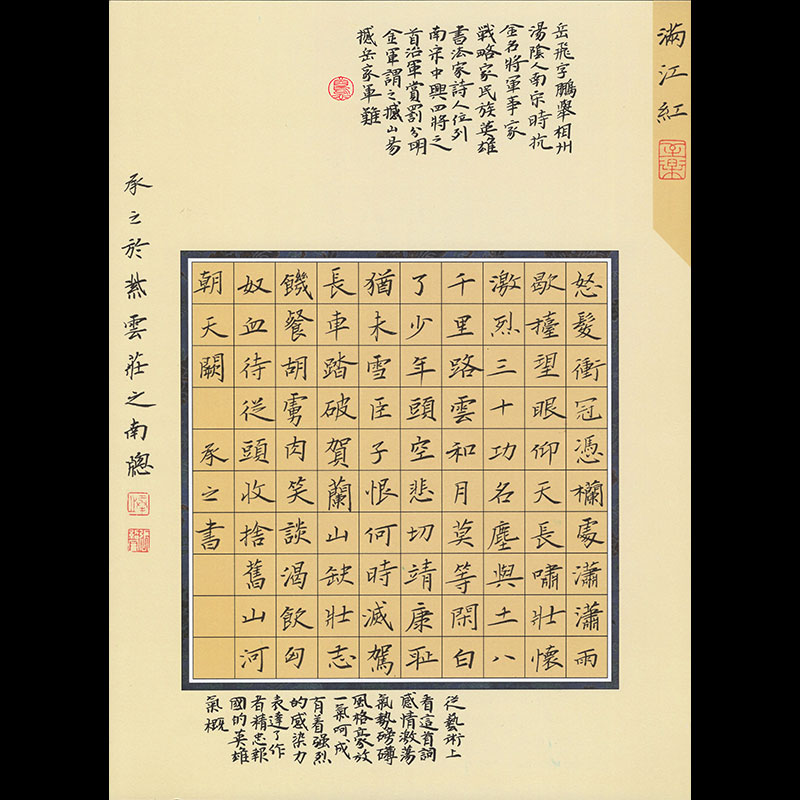 滿江紅
岳飛字鵬舉相州
湯陰人南宗時抗
金名將軍事家
戰略家民族英雄
書法家詩人位列
南宋中興四將之
首治軍賞罰分明
金軍謂之撼山易
撼岳家軍難
怒髮衝冠憑欄處瀟瀟雨
歇擡望眼仰天長嘯壯懷
激烈三十功名塵與土八
千里路雲和月莫等閑白
了少年頭空悲切靖康恥
猶未雪臣子恨何時滅駕
長車踏破賀蘭山缺壯志
饑餐胡虜肉笑談渴飲匈
奴血待從頭收捨舊山河
朝天闕 承之書
從藝術上
看這首詞
感情激蕩
氣勢磅礴
風格豪放
一氣呵成
有着强烈
的感染力
表達了作
者精忠報
國的英雄
氣概
承之於紫雲莊之南牕